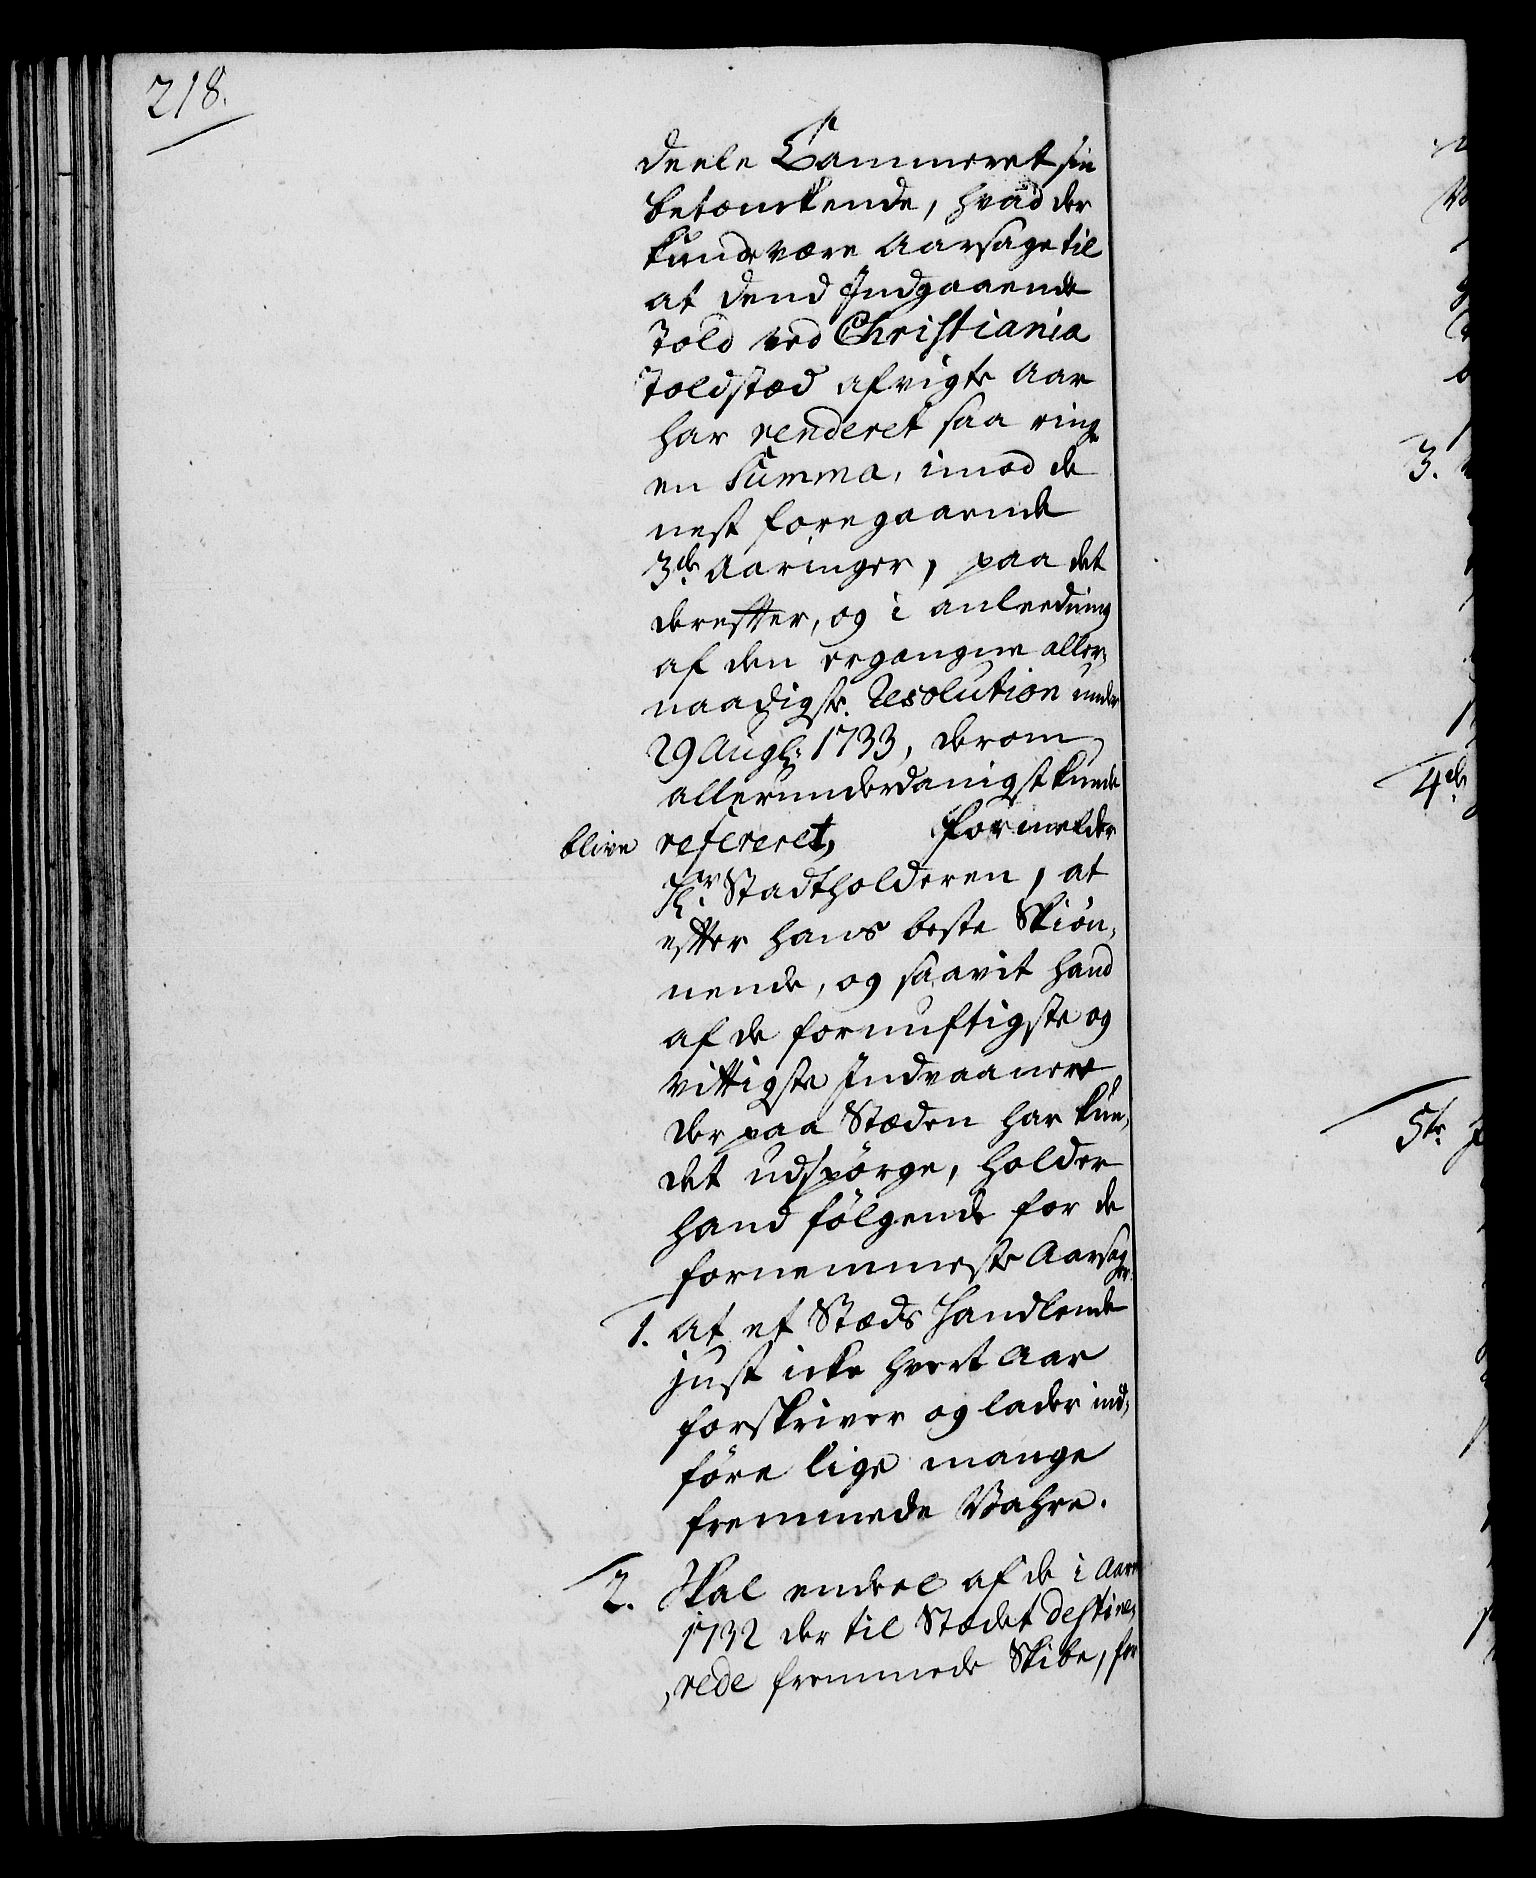 218.
deele Cammeret sin
betænkende, hvad der
kunde være Aarsage til
at dend Indgaaende
Told ved Christiania
Toldstæd afvigte Aar
har renderet saa ringe
en Summa, imod de
nest foregaaende
3de Aaringer, paa det
derefter, og i anleedning
af den ergangne aller-
naadigste Resolution under
29 Augl: 1733, derom
allerunderdanigst kunde
blive refereret, formelder
Hr. Stadtholderen, at
efter hans beste Skiøn-
nende, og saavit hand
af de fornuftigste og
vittigste Indvaanere
der paa Stæden har kun-
det udspörge, holder
hand fölgende for de
fornemmeste Aarsager.
1. At et Stæds Handlende
just icke hvert Aar
forskriver og lader ind-
före lige mange
fremmede Vahre.
2. Skal endeel af de i Aaret
1732 der til Stædet destine-
rede fremmede Skibe, for
3.
4de
5te